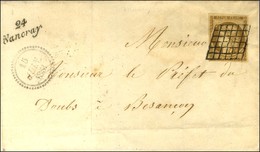 24
Nancray
Monsieur
Monsieur le Préfet du
Doubs à Besançon